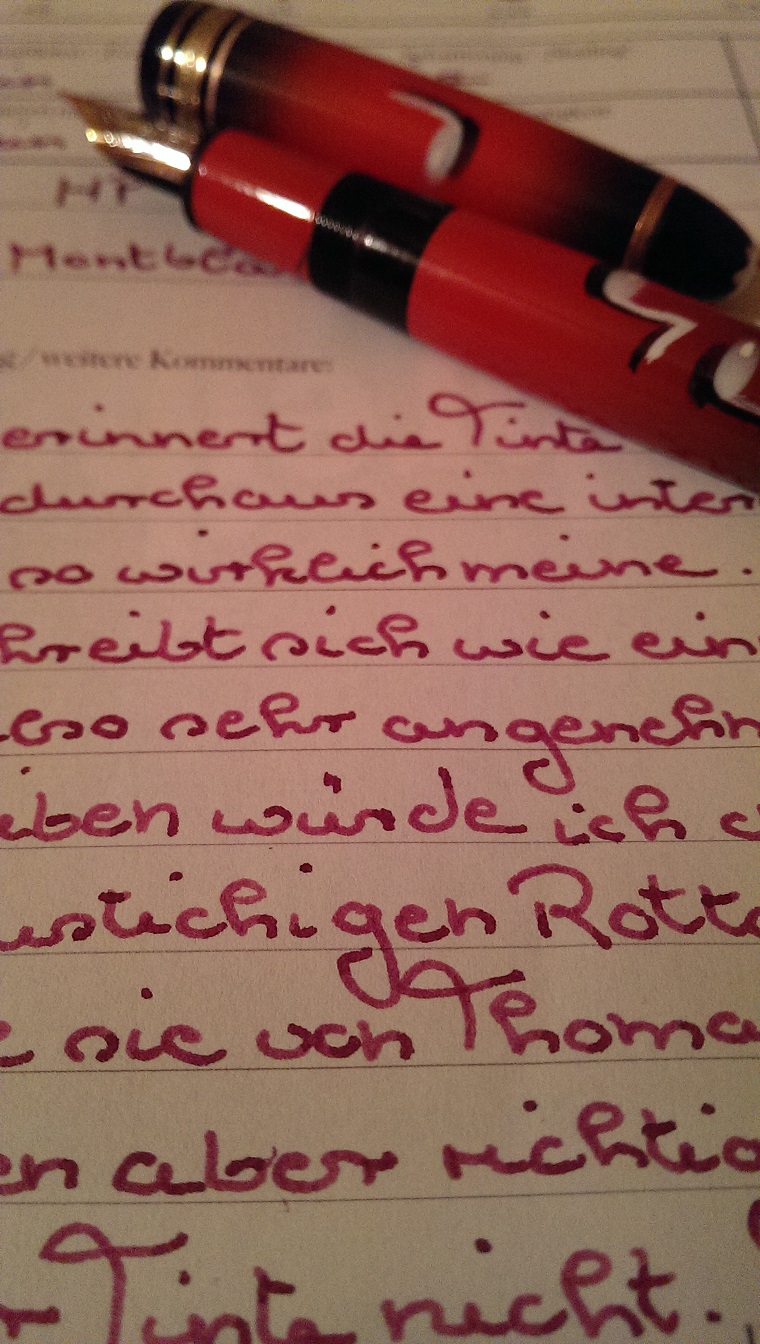 HP
Montblan
weitere Kommentare:
erinnert die Tinte
durchaus eine inter
so wirklich meine.
hreibt sich wie ein
eso sehr angenehm
iben würde ich
ustichigen Rotto
e sie von Thoma
en aber richtig
r Tinte nicht.